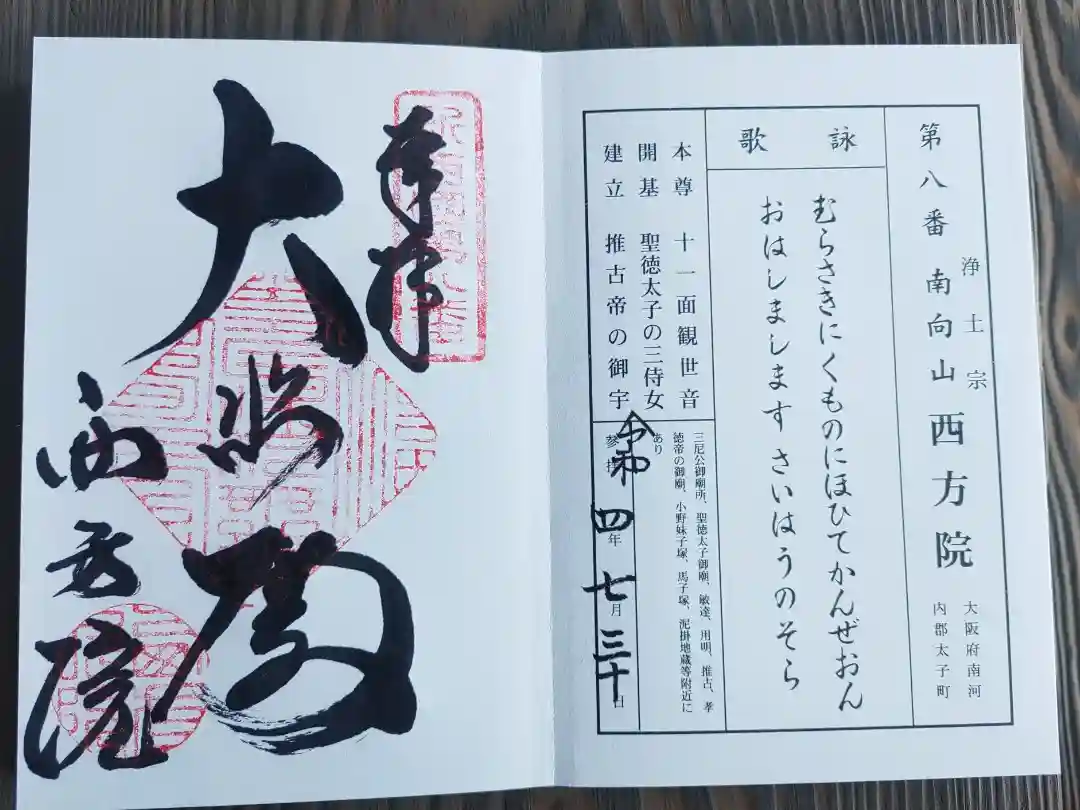 第八番 浄土宗 南向山 西方院 大阪府南河
内郡太子町
詠歌
むらさきにくものにほひてかんぜおん
おはしましますさいはうのそら
本尊 十一面観世音
開基 聖徳太子の三侍女
建立 推古帝の御宇
三尼公御廟所、聖徳太子御廟、敏達、用明、推古、孝
徳帝の御廟、小野妹子塚、馬子塚、泥掛地蔵等附近に
あり
参拝 令和四年七月三十日
奉拝
大悲閣
西方院